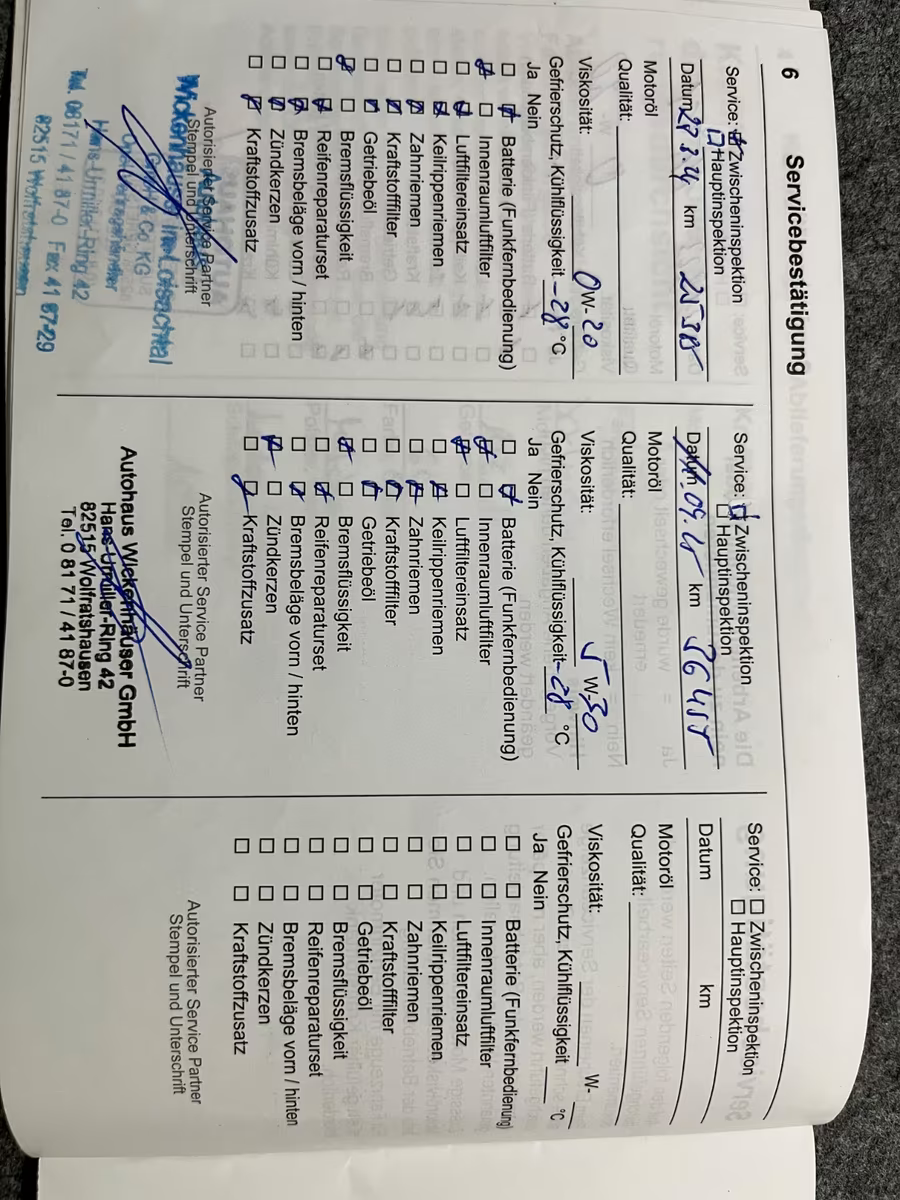 6 Servicebestätigung
Service: Zwischeninspektion
Hauptinspektion
Datum 28.3.24 km 25385
Motoröl
Qualität:
Viskosität: 0 W- 20
Gefrierschutz, Kühlflüssigkeit -28 °C
Ja Nein
Batterie (Funkfernbedienung)
Innenraumluftfilter
Luftfiltereinsatz
Keilrippenriemen
Zahnriemen
Kraftstofffilter
Getriebeöl
Bremsflüssigkeit
Reifenreparaturset
Bremsbeläge vorn / hinten
Zündkerzen
Kraftstoffzusatz
Autorisierter Service Partner
Stempel und Unterschrift
& Co. KG
Hans-Urmiller-Ring 42
82515 Wolfratshausen
Tel. 08171 / 41 87-0 Fax 41 87-29
Service: Zwischeninspektion
Hauptinspektion
Datum 09.25 km 36455
Motoröl
Qualität:
Viskosität: 5 W- 30
Gefrierschutz, Kühlflüssigkeit -28 °C
Ja Nein
Batterie (Funkfernbedienung)
Innenraumluftfilter
Luftfiltereinsatz
Keilrippenriemen
Zahnriemen
Kraftstofffilter
Getriebeöl
Bremsflüssigkeit
Reifenreparaturset
Bremsbeläge vorn / hinten
Zündkerzen
Kraftstoffzusatz
Autorisierter Service Partner
Stempel und Unterschrift
Autohaus Wickenhäuser GmbH
Hans-Urmiller-Ring 42
82515 Wolfratshausen
Tel. 0 81 71 / 41 87-0
Service: Zwischeninspektion
Hauptinspektion
Datum km
Motoröl
Qualität:
Viskosität: W-
Gefrierschutz, Kühlflüssigkeit °C
Ja Nein
Batterie (Funkfernbedienung)
Innenraumluftfilter
Luftfiltereinsatz
Keilrippenriemen
Zahnriemen
Kraftstofffilter
Getriebeöl
Bremsflüssigkeit
Reifenreparaturset
Bremsbeläge vorn / hinten
Zündkerzen
Kraftstoffzusatz
Autorisierter Service Partner
Stempel und Unterschrift